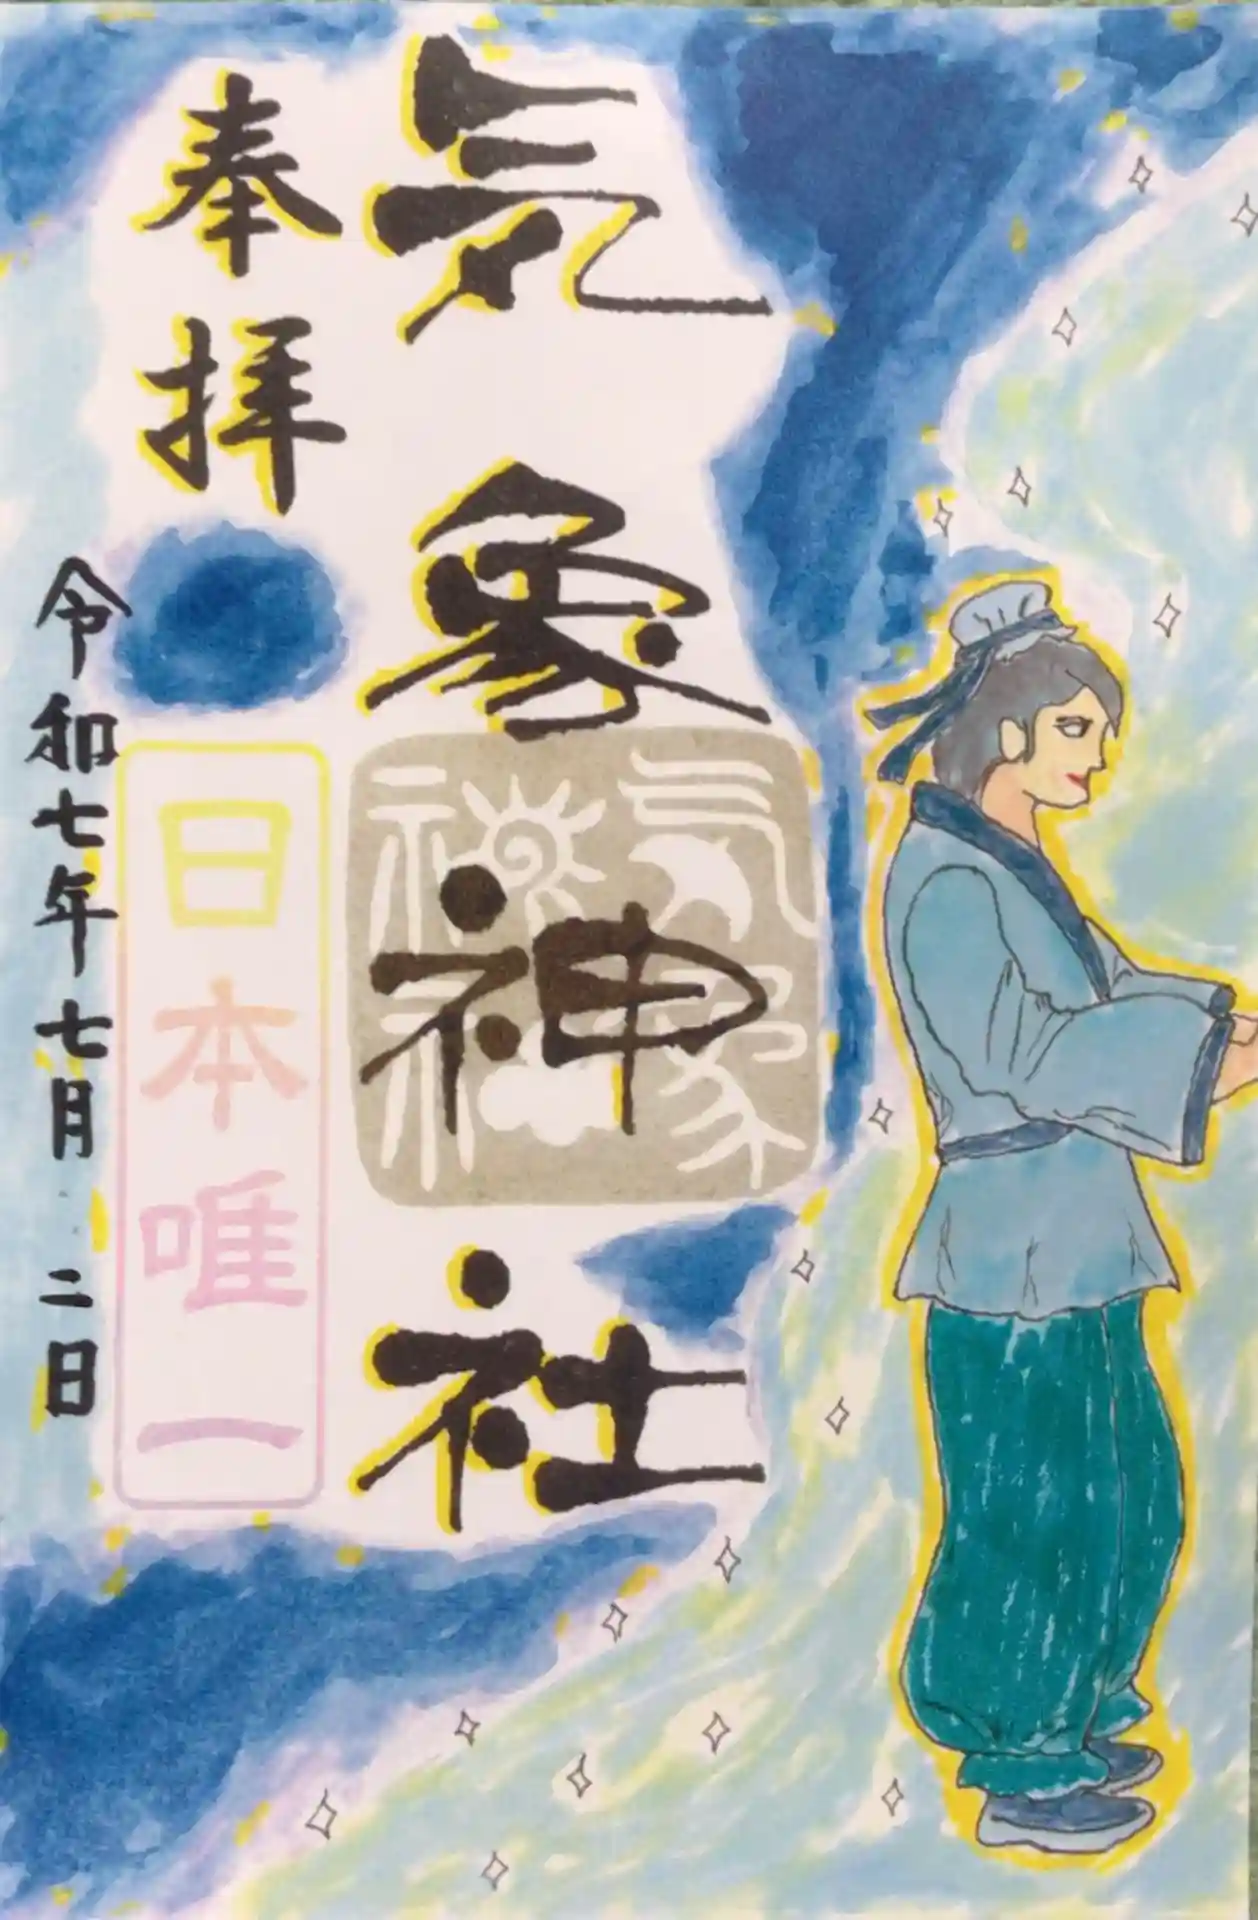 気象神社
気象神社
奉拝
日本唯一
令和七年七月二日